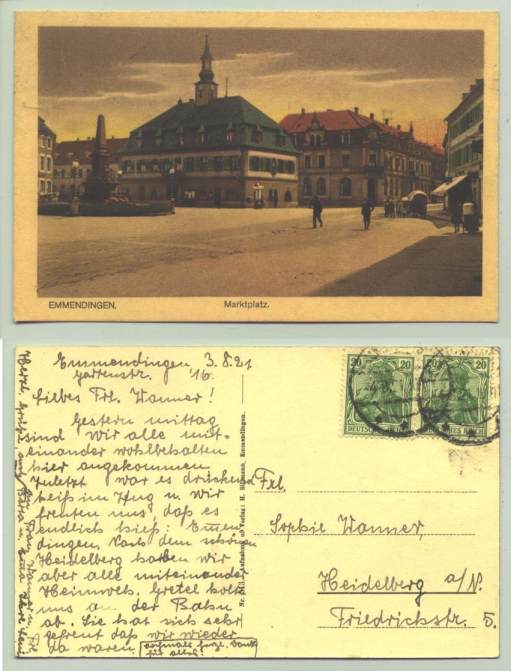 EMMENDINGEN.
Marktplatz.
Emmendingen 3.8.21
Gartenstr. 16.
Liebes Frl. Wanner!
Gestern mittag
sind wir alle mit-
einander wohlbehalten
hier angekommen.
Zuletzt war es drückend
heiß im Zug u. wir
freuten uns, daß es
endlich hieß: Emmen-
dingen. Nach dem schönen
Heidelberg haben wir
aber alle miteinander
Heimweh. Gretel holte
uns an der Bahn
ab. Sie hat sich sehr
gefreut daß wir wieder
da waren.
nochmals Dank
für alles!
Herzl. Grüße
Frau Wanner u. Frl.
20 20
20
DEUTSCHES REICH
Frl,
Sophie Wanner,
Heidelberg a/N.
Friedrichstr. 5.
Verlag: Emmendingen.